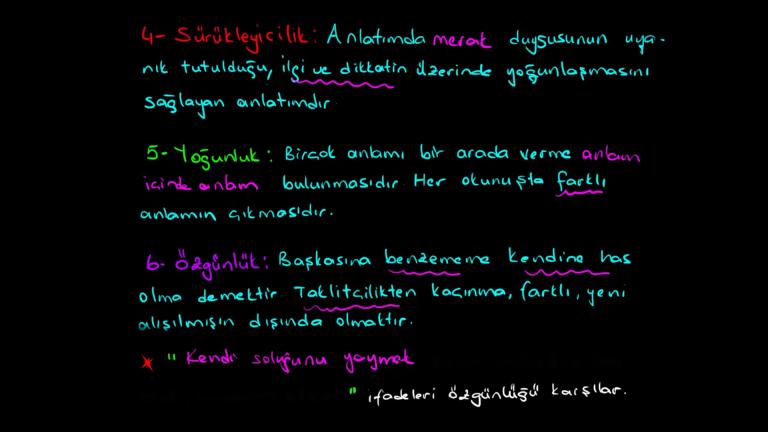 4- Sürükleyicilik: Anlatımda merak duygusunun uya-
nık tutulduğu, ilgi ve dikkatin üzerinde yoğunlaşmasını
sağlayan anlatımdır.
5- Yoğunluk: Birçok anlamı bir arada verme anlam
içinde anlam bulunmasıdır Her okunuşta farklı
anlamın çıkmasıdır.
6- Özgünlük: Başkasına benzememe kendine has
olma demektir Taklitçilikten kaçınma, farklı, yeni
alışılmışın dışında olmaktır.
* " Kendi soluğunu yaymak
" ifadeleri özgünlüğü karşılar.